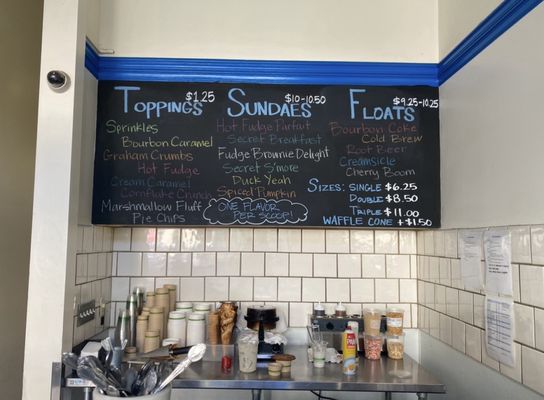 TOPPINGS $1.25
Sprinkles
Bourbon Caramel
Graham Crumbs
Hot Fudge
Cream Caramel
Cornflake Crunch
Marshmallow Fluff
Pie Chips
SUNDAES $10-10.50
Hot Fudge Parfait
Secret Breakfast
Fudge Brownie Delight
Secret S'more
Duck Yeah
Spiced Pumpkin
ONE FLAVOR
PER SCOOP!
FLOATS $9.25-10.25
Bourbon Coke
Cold Brew
Root Beer
Creamsicle
Cherry Boom
SIZES: SINGLE $6.25
DOUBLE $8.50
TRIPLE $11.00
WAFFLE CONE +$1.50